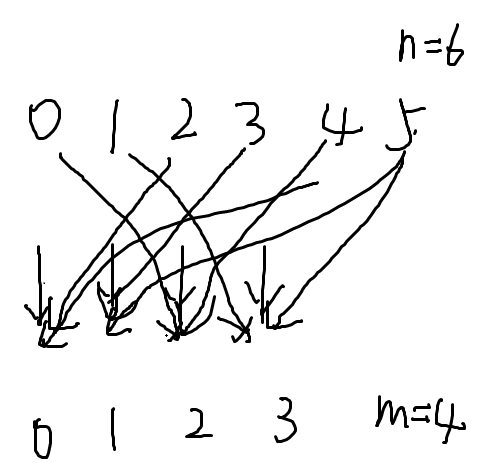 n=6
0 1 2 3 4 5
0 1 2 3 m=4